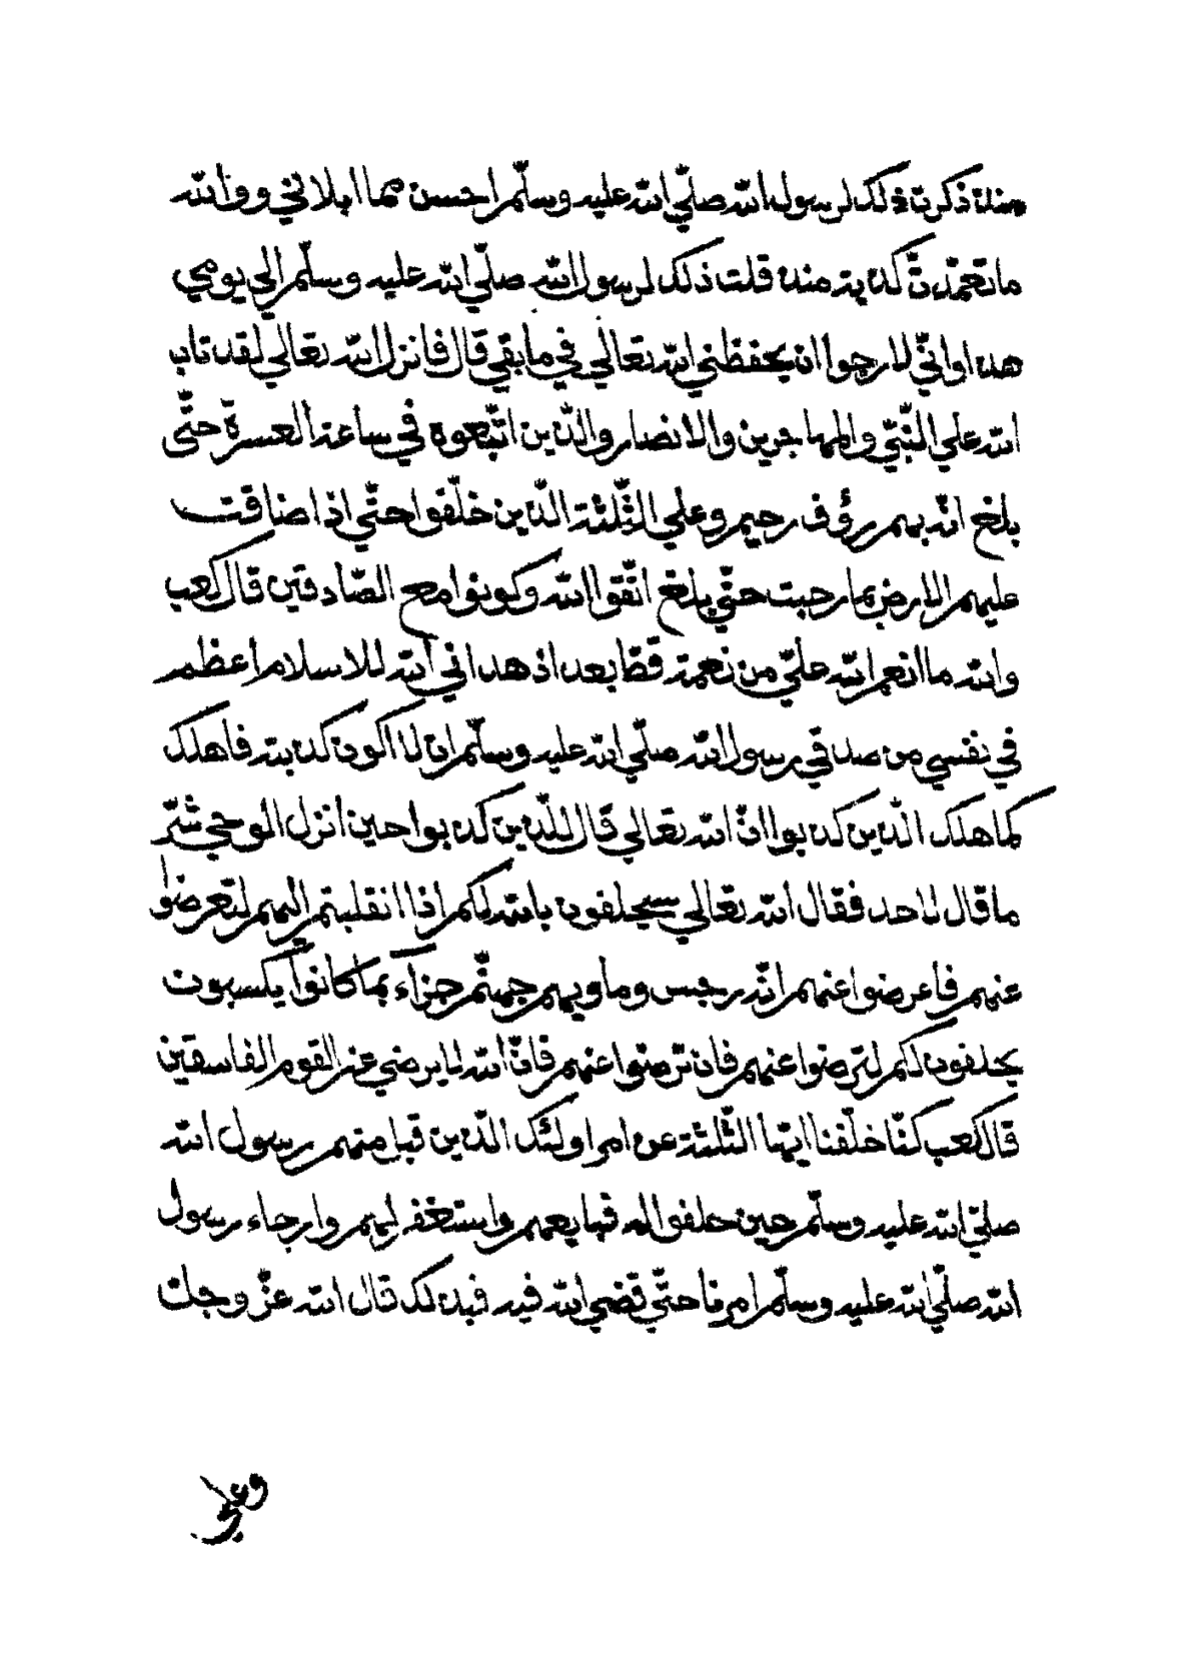 منذ ذكرت ذلك لرسول الله صلّي الله عليه وسلّم احسن مما ابلاني ووالله
ما تعمّدتّ كذبة منذ قلت ذلك لرسول الله صلّي الله عليه وسلّم الي يومي
هذا وانّي لارجوا ان يحفظني الله تعالي في ما بقي قال فانزل الله تعالي لقد تاب
الله علي النّبيّ والمهاجرين والانصار والّذين اتّبعوه في ساعة العسرة حتّي
بلغ انّه بهم رؤف رحيم وعلي الثّلثة الّذين خلّفوا حتّي اذا ضاقت
عليهم الارض بما رحبت حتّي بلغ اتّقوا الله وكونوا مع الصّادقين قال كعب
والله ما انعم الله عليّ من نعمة قطّ بعد اذ هداني الله للاسلام اعظم
في نفسي من صدقي رسول الله صلّي الله عليه وسلّم ان لا اكون كذبته فاهلك
كما هلك الّذين كذبوا انّ الله تعالي قال للّذين كذبوا حين انزل الوحي شرّ
ما قال لاحد فقال الله تعالي سيحلفون بالله لكم اذا انقلبتم اليهم لتعرضوا
عنهم فاعرضوا عنهم انّهم رجس وماويهم جهنّم جزآء بما كانوا يكسبون
يحلفون لكم لترضوا عنهم فان ترضوا عنهم فانّ الله لا يرضي عن القوم الفاسقين
قال كعب كنّا خلّفنا ايّها الثّلثة عن امر اولئك الّذين قبل منهم رسول الله
صلّي الله عليه وسلّم حين حلفوا له فبايعهم واستغفر لهم وارجاء رسول
الله صلّي الله عليه وسلّم امرنا حتّي قضي الله فيه فبذلك قال الله عزّ وجلّ
وعلي